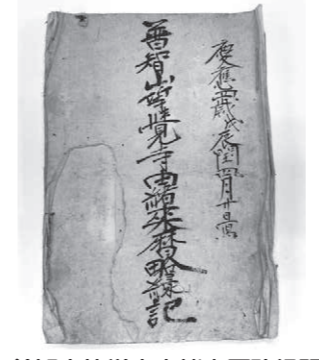 慶應四歳戊辰閏四月廿日寫
普智山等覺寺由緒来暦略録記